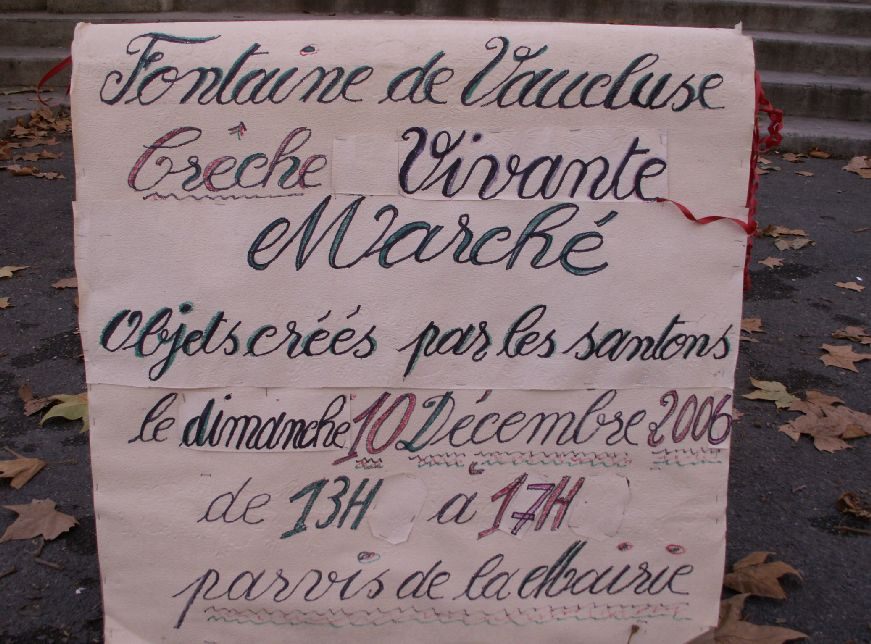 Fontaine de Vaucluse
Crèche Vivante
Marché
Objets créés par les santons
le dimanche 10 Décembre 2006
de 13H à 17H
parvis de la Mairie